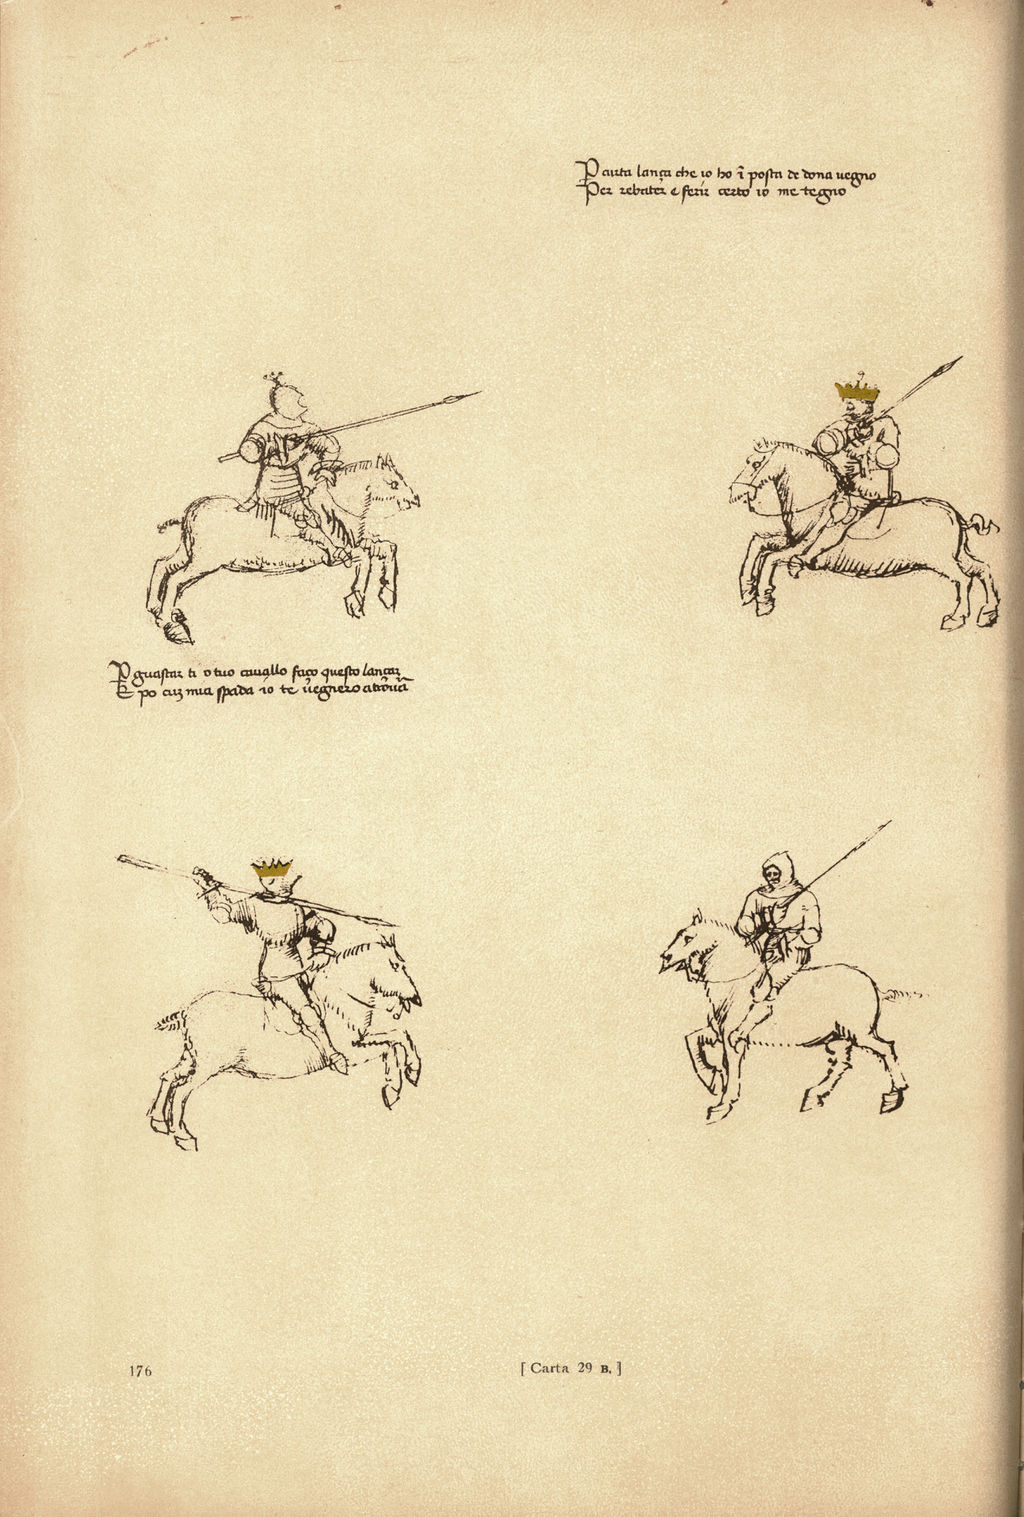 P curta lança che io ho ĩ posta de dona uegno
Per rebater e ferir certo io me tegno
P guastar ti o tuo cauallo faço questo lançar
E po cuʒ mia spada io te uegnero
176
[ Carta 29 B. ]